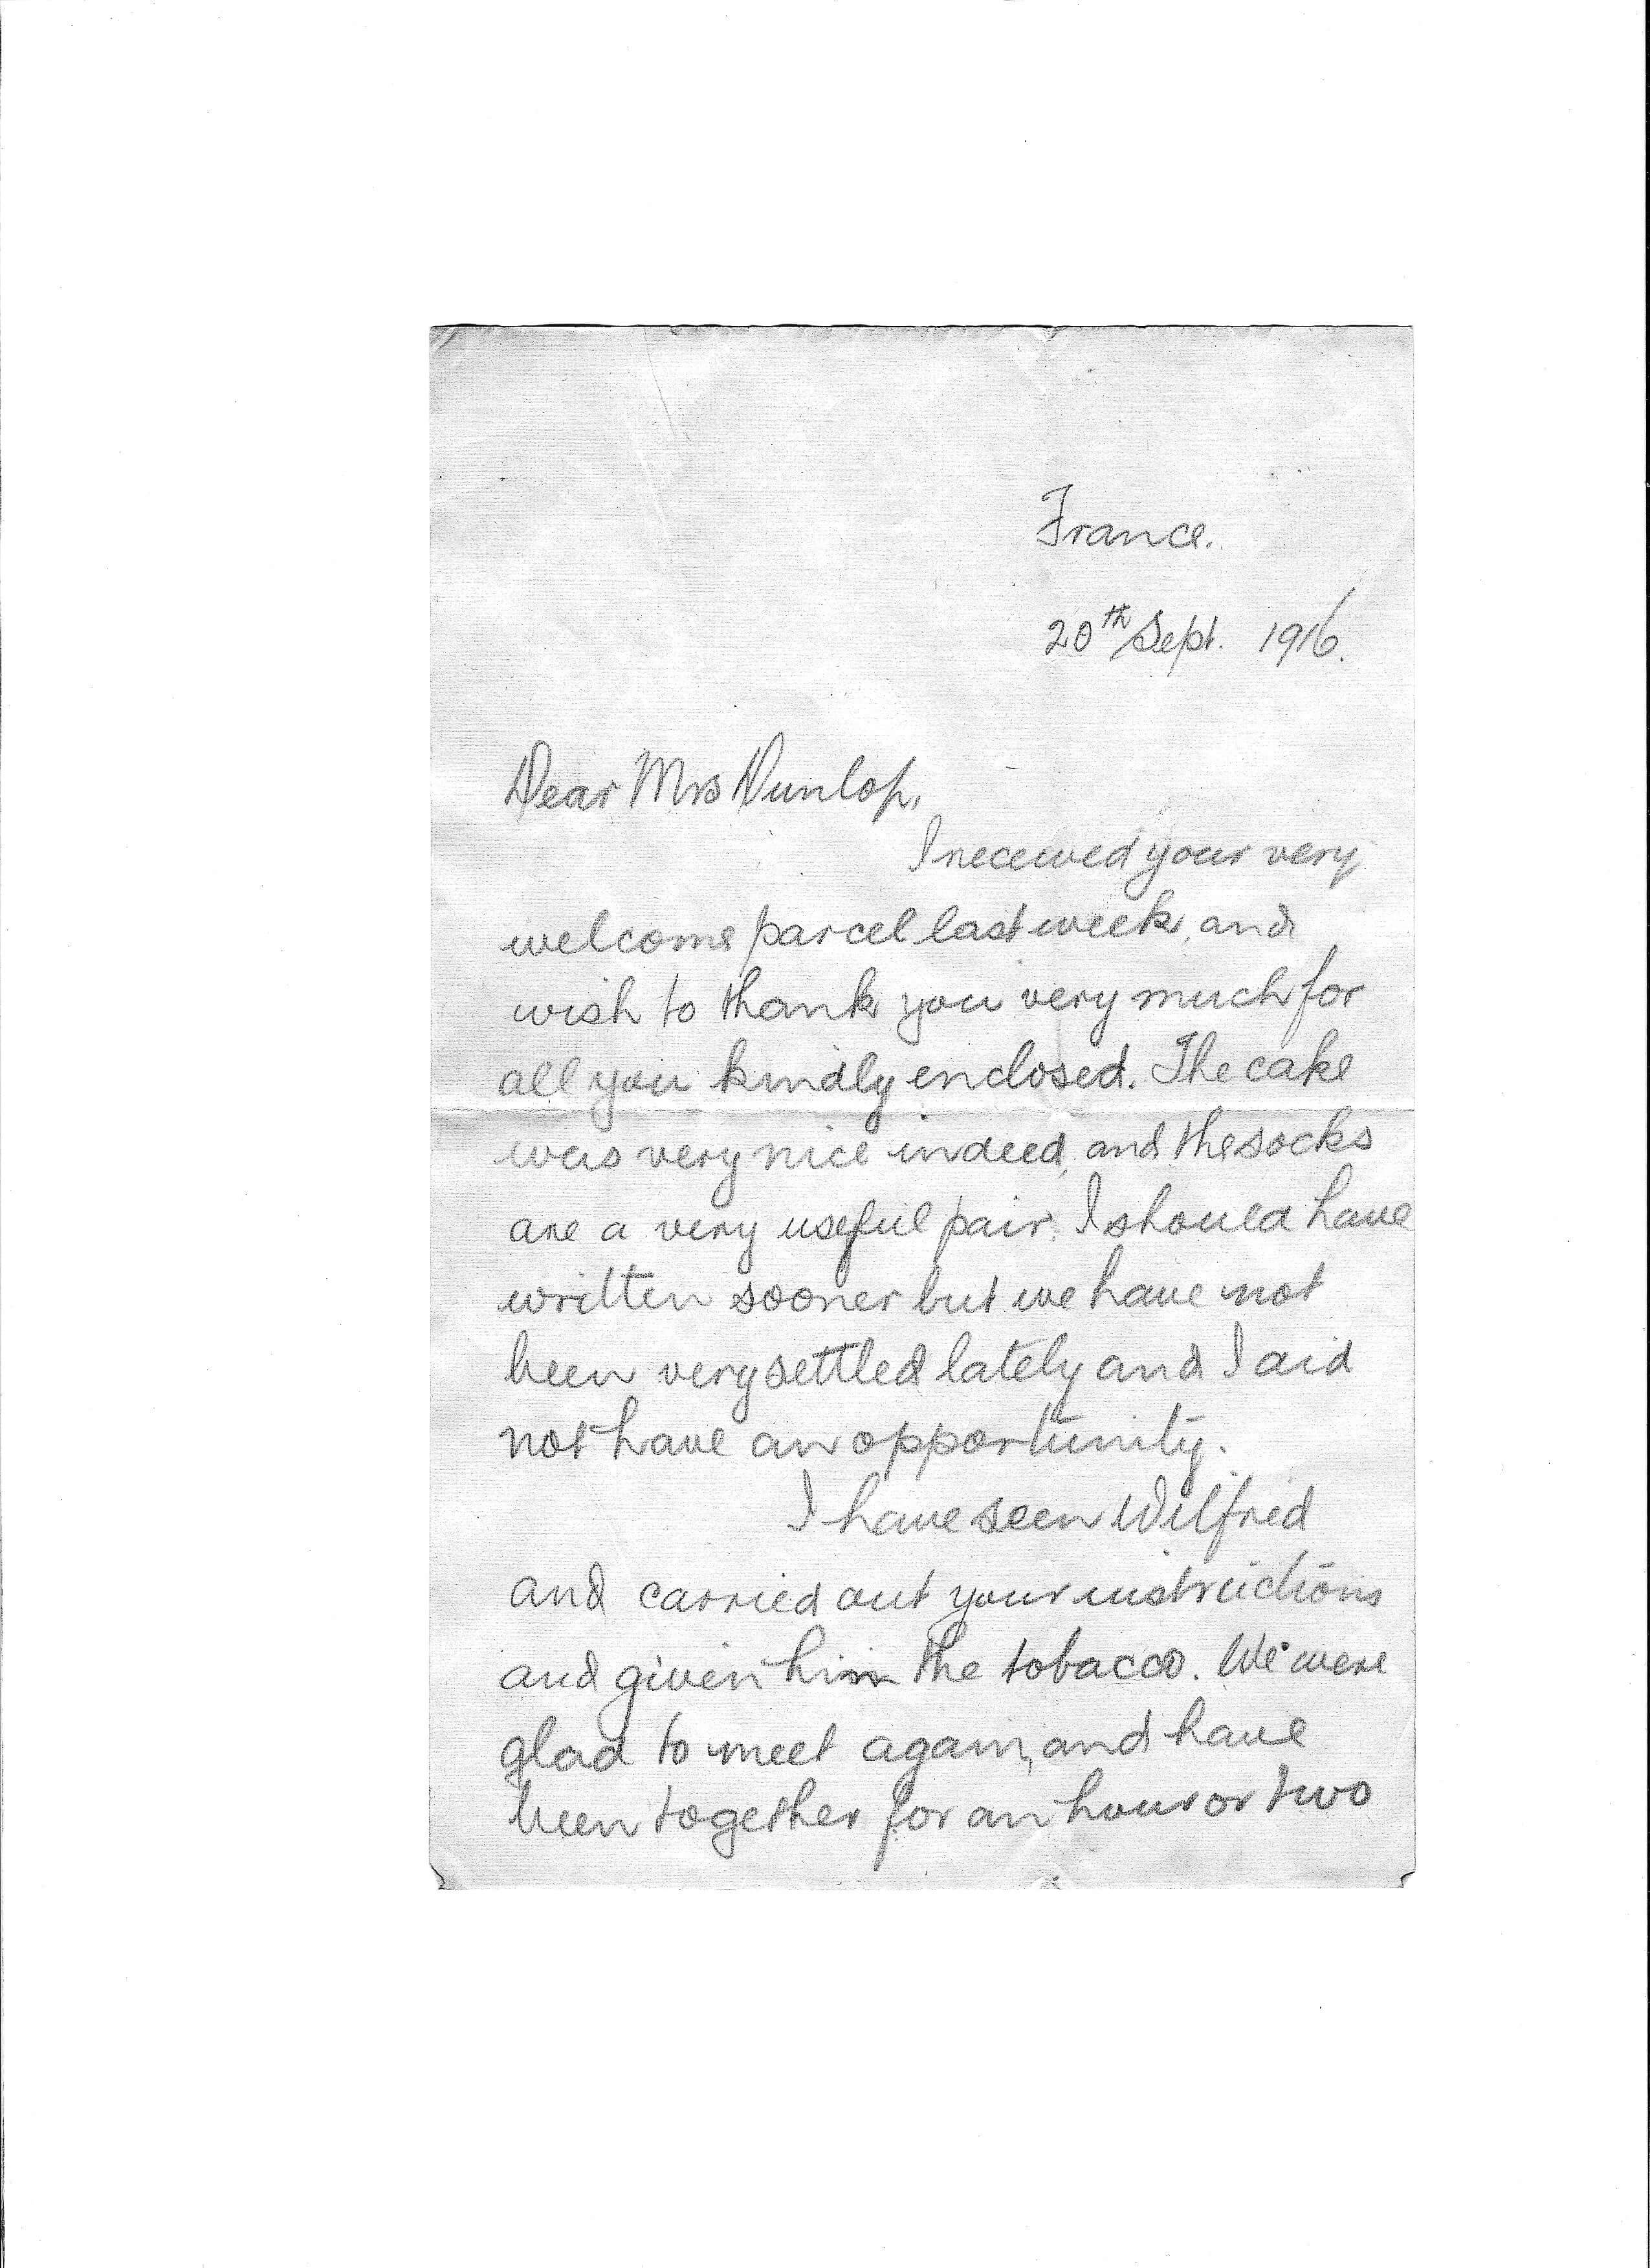 France.
20th Sept. 1916.
Dear Mrs Dunlop,
I received your very
welcome parcel last week, and
wish to thank you very much for
all you kindly enclosed. The cake
was very nice indeed, and the socks
are a very useful pair. I should have
written sooner but we have not
been very settled lately and I did
not have an opportunity.
I have seen Wilfred
and carried out your instructions
and given him the tobacco. We were
glad to meet again, and have
been together for an hour or two